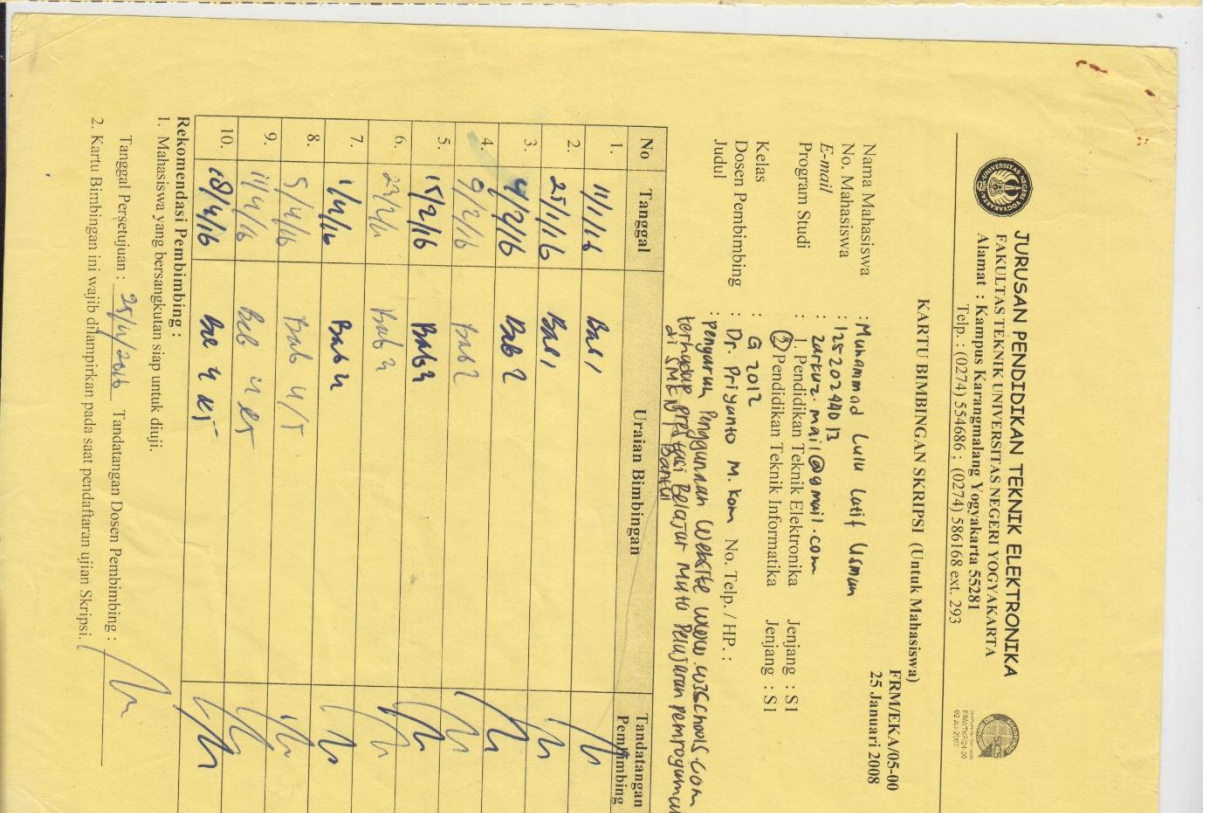 JURUSAN PENDIDIKAN TEKNIK ELEKTRONIKA
FAKULTAS TEKNIK UNIVERSITAS NEGERI YOGYAKARTA
Alamat : Kampus Karangmalang Yogyakarta 55281
Telp. : (0274) 554686 ; (0274) 586168 ext. 293
FRM/EKA/05-00
25 Januari 2008
KARTU BIMBINGAN SKRIPSI (Untuk Mahasiswa)
Nama Mahasiswa : Muhammad Lulu Latif Usman
No. Mahasiswa : 12520244013
E-mail : zarkuz.mail@gmail.com
Program Studi : 1. Pendidikan Teknik Elektronika Jenjang : S1
2) Pendidikan Teknik Informatika Jenjang : S1
Kelas : G 2012
Dosen Pembimbing : Dr. Priyanto M. Kom No. Telp. / HP. :
Judul : Pengaruh Penggunaan Website www.w3schools.com
terhadap prestasi Belajar Mata Pelajaran
di SMK N 1 Bantul
No Tanggal Uraian Bimbingan Tandatangan Pembimbing
1. 11/1/16 Bab 1
2. 25/1/16 Bab 1
3. 4/2/16 Bab 2
4. 9/2/16 Bab 2
5. 15/2/16 Bab 3
6. 23/2/16 Bab 3
7. 1/4/16 Bab 4
8. 5/4/16 Bab 4/5
9. 11/4/16 Bab 4
10. 18/4/16 4
Rekomendasi Pembimbing :
1. Mahasiswa yang bersangkutan siap untuk diuji.
Tanggal Persetujuan : 25/4/2016 Tandatangan Dosen Pembimbing :
2. Kartu Bimbingan ini wajib dilampirkan pada saat pendaftaran ujian Skripsi.